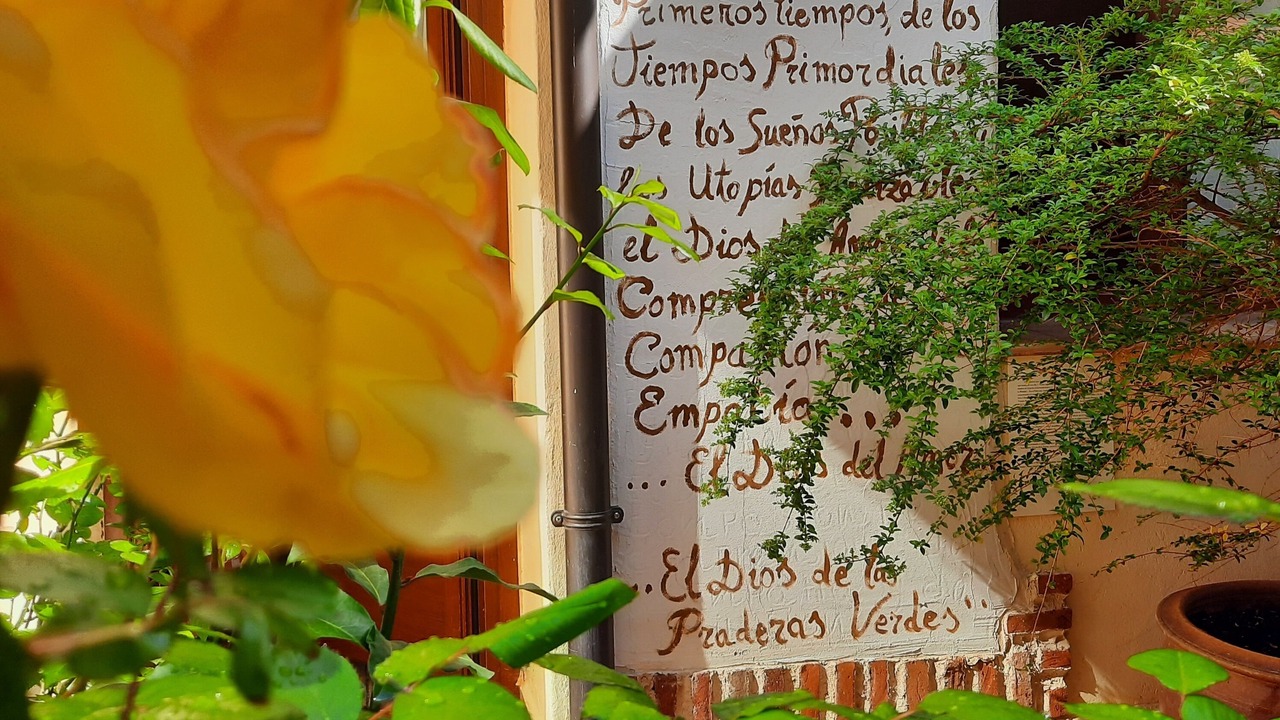 Primeros tiempos, de los
Tiempos Primordiales
De los Sueños
las Utopías
el Dios
Comprensión
Compasión
Empatía ...
... El Dios del Amor
...El Dios de las
Praderas Verdes"